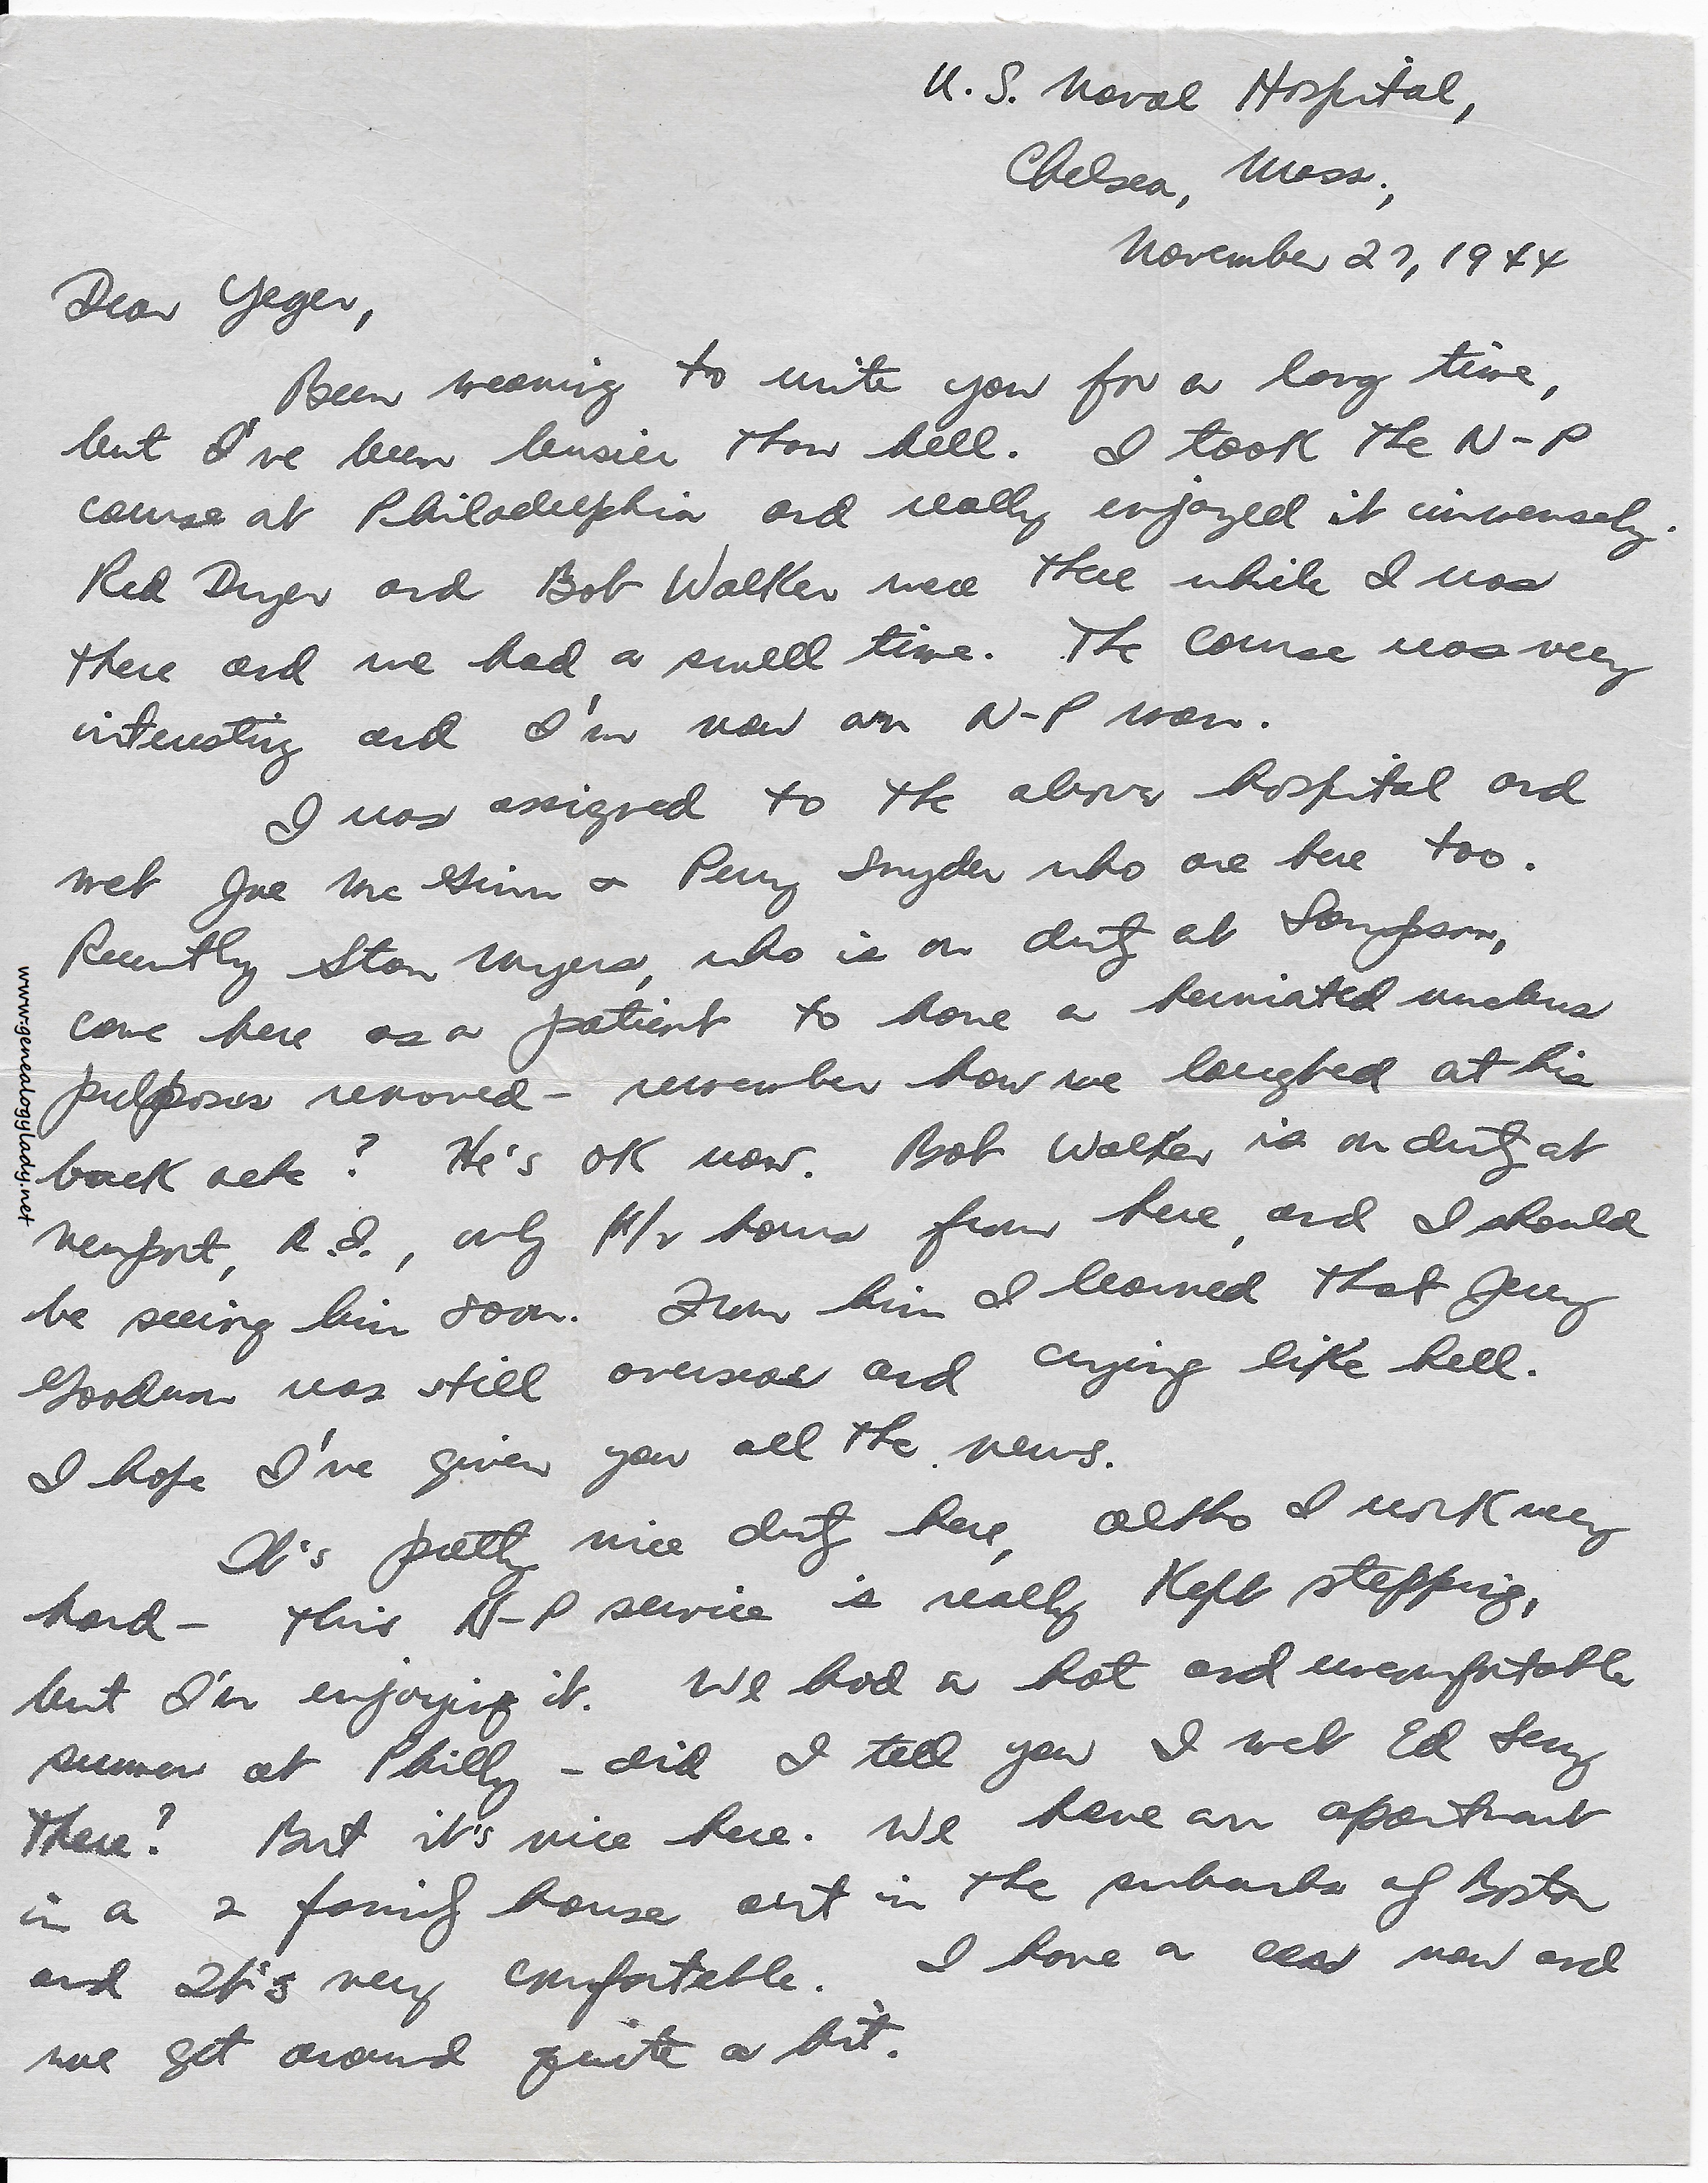 U. S. Naval Hospital,
Chelsea, Mass.,
November 27, 1944
Dear Yeger,
Been meaning to write you for a long time,
but I've been busier than hell. I took the N-P
course at Philadelphia and really enjoyed it immensely.
Red Dwyer and Bob Walker were there while I was
there and we had a swell time. The course was very
interesting and I'm now an N-P man.
I was assigned to the above hospital and
met Joe McGinn & Perry Snyder who are here too.
Recently Stan Myers, who is on duty at Sampson,
came here as a patient to have a herniated nucleus
pulposus removed - remember how we laughed at his
back ache? He's OK now. Bob Walker is on duty at
Newport, R.I., only 1 1/2 hours from here, and I should
be seeing him soon. From him I learned that Jerry
Goodman was still overseas and crying like hell.
I hope I've given you all the news.
It's pretty nice duty here, altho I work very
hard - this N-P service is really kept stepping,
but I'm enjoying it. We had a hot and uncomfortable
summer at Philly - did I tell you I met Ed
there? But it's nice here. We have an apartment
in a 2 family house out in the suburbs of Boston
and It's very comfortable. I have a car now and
we get around quite a bit.
www.genealogylady.net